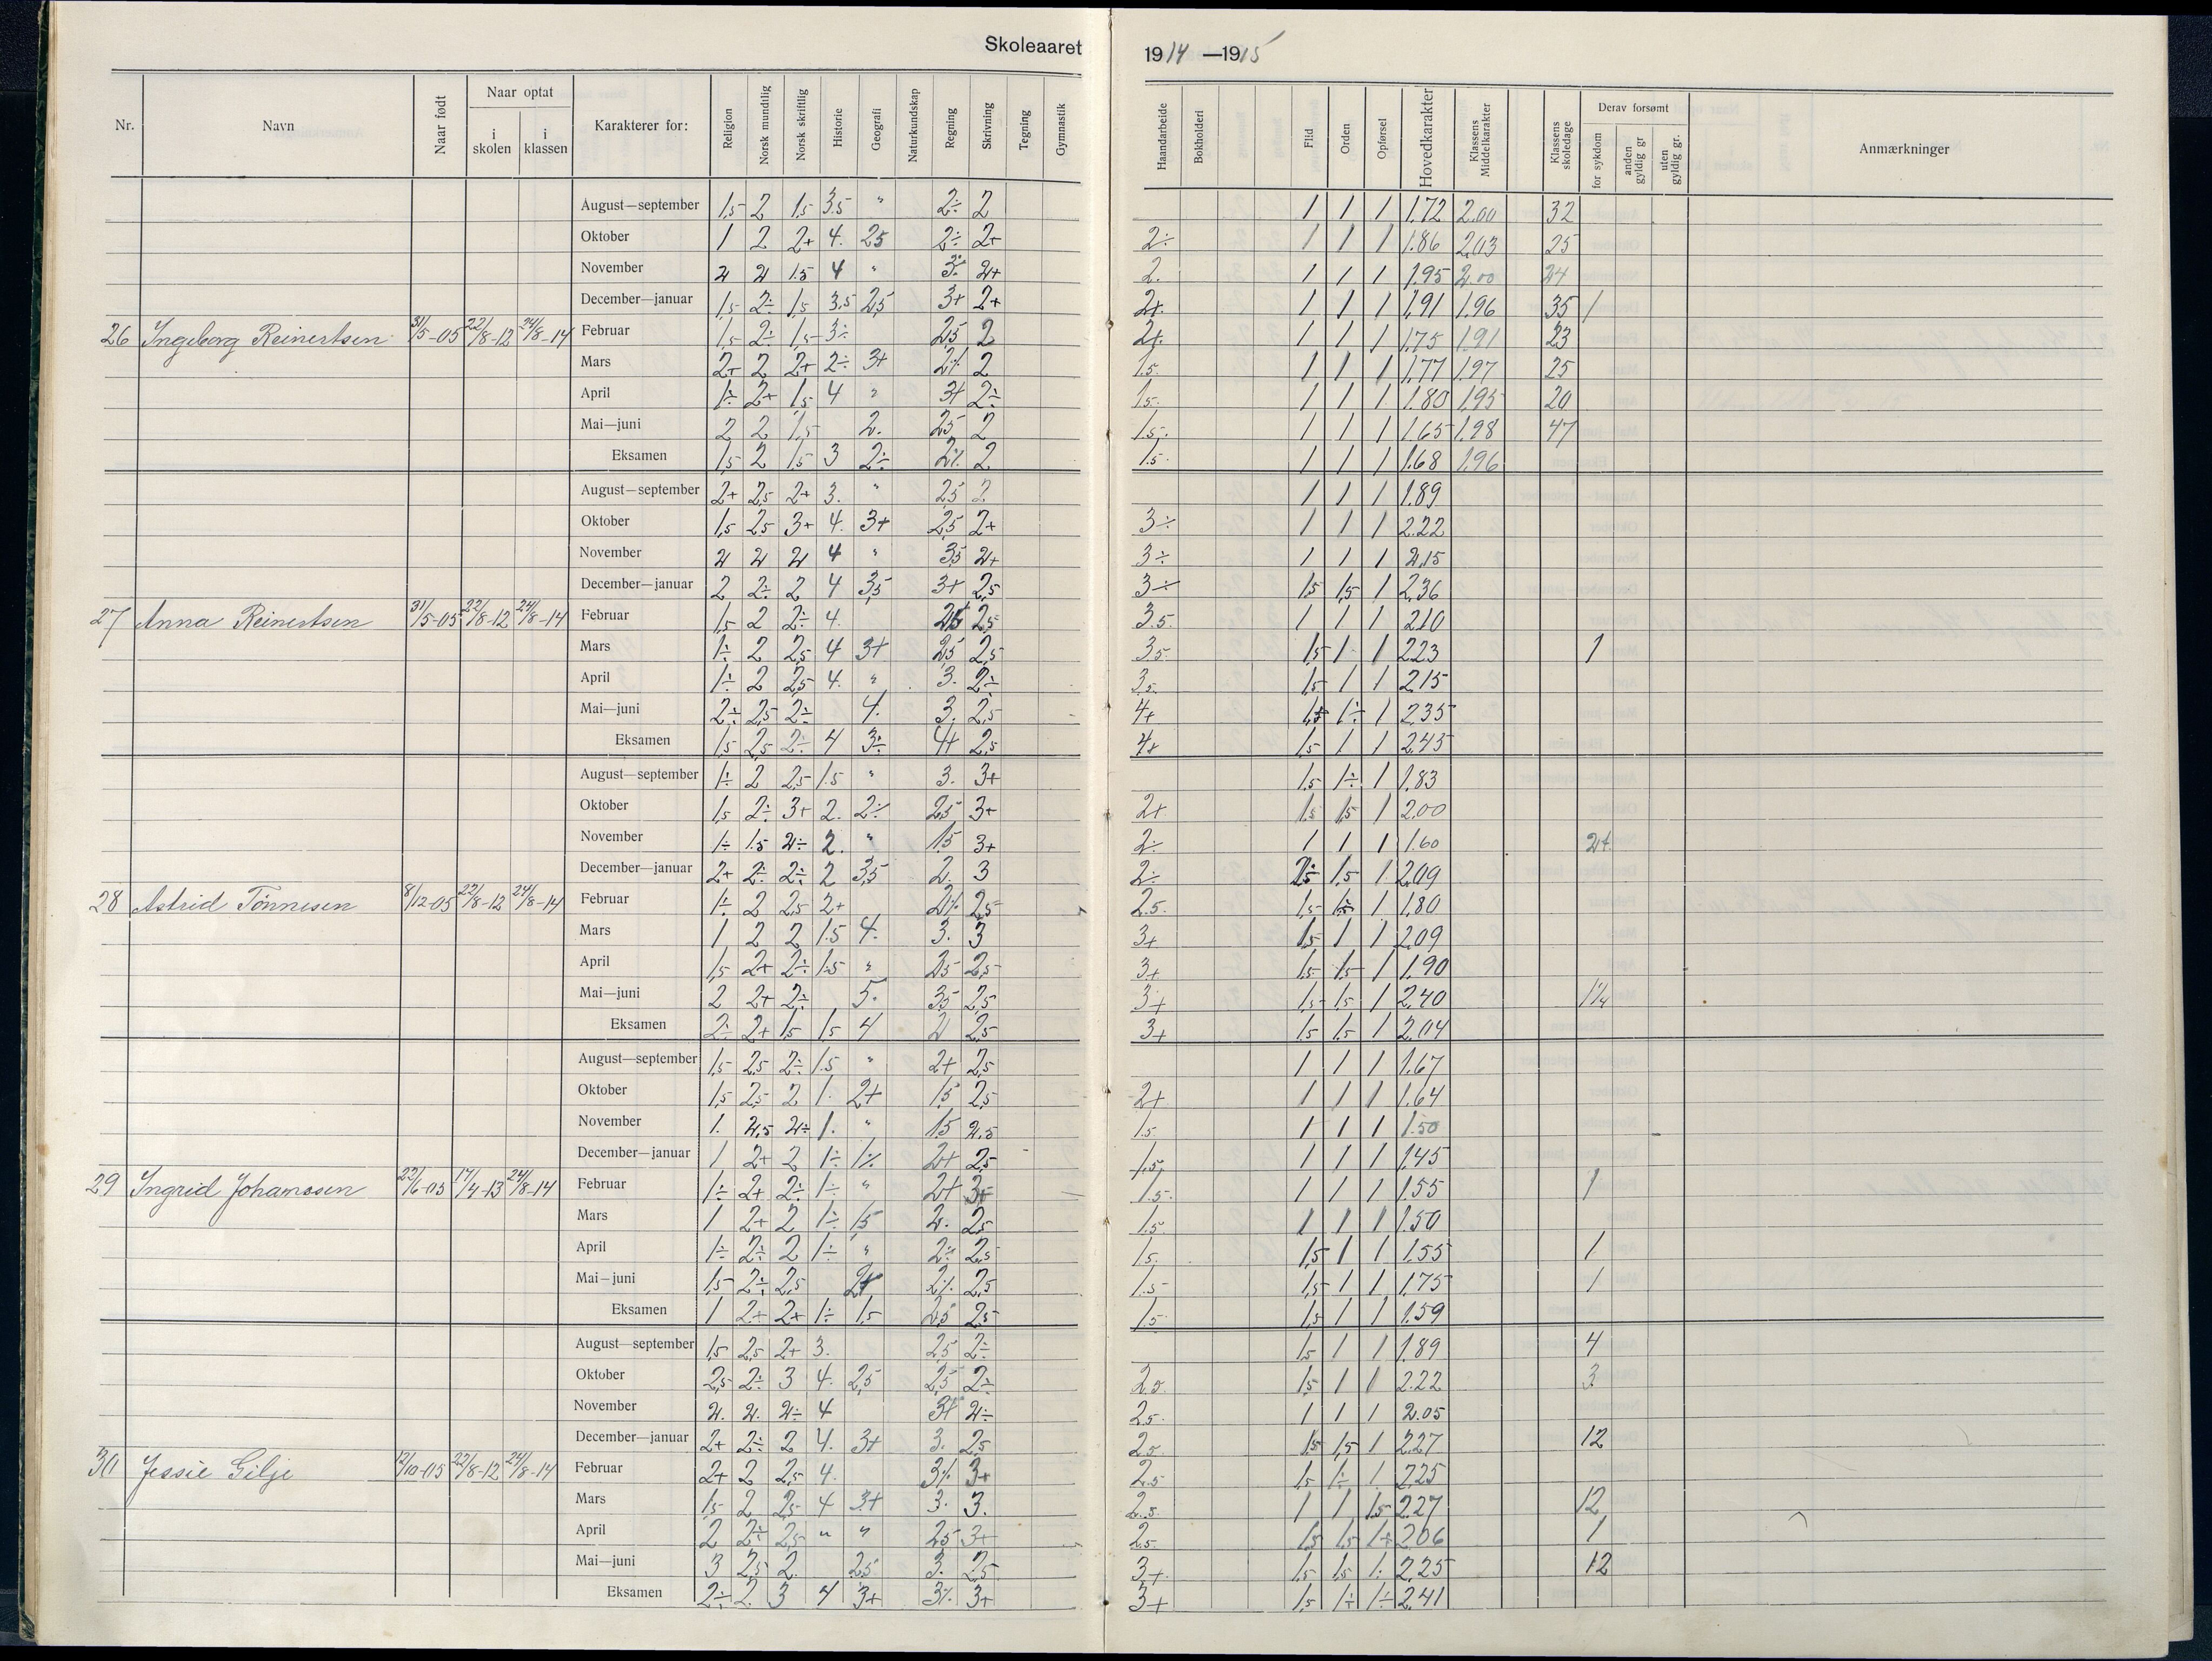 Skoleaaret 1914—1915
Nr. Navn Naar født Naar optat i skolen i klassen Karakterer for: Religion Norsk mundtlig Norsk skriftlig Historie Geografi Naturkundskap Regning Skrivning Tegning Gymnastik Haandarbeide Bokholderi Flid Orden Opførsel Hovedkarakter Klassens Middelkarakter Klassens skoledage Derav forsømt for sykdom anden gyldig gr uten gyldig gr. Anmærkninger
August—september 1,5 2 1,5 3.5 " 2÷ 2 1 1 1 1.72 2.00 32
Oktober 1 2 2+ 4. 2,5 2÷ 2+ 2÷ 1 1 1 1.86 2.03 25
November 2 2 1.5 4 " 3÷ 2+ 2. 1 1 1 1.95 2.00 24
December—januar 1,5 2÷ 1,5 3.5 2,5 3+ 2+ 2+ 1 1 1 1,91 1.96 35 1
26 Ingeborg Reinertsen 31/5-05 22/8-12 24/8-14 Februar 1,5 2÷ 1,5 3÷ 2,5 2 2+ 1 1 1 1,75 1,91 23
Mars 2+ 2 2+ 2÷ 3+ 2÷ 2 1.5 1 1 1 1,77 1.97 25
April 1÷ 2+ 1,5 4 " 3+ 2÷ 1.5. 1 1 1 1.80 1.95 20
Mai—juni 2 2 1,5 2. 2,5 2 1.5. 1 1 1 1.65 1.98 47
Eksamen 1,5 2 1,5 3 2÷ 2÷ 2 1.5 1 1 1 1.68 1.96
August—september 2+ 2,5 2+ 3. " 2,5 2 1 1 1 1.89
Oktober 1,5 2,5 3+ 4. 3+ 2,5 2+ 3÷ 1 1 1 2.22
November 2 2 2 4 " 3,5 2+ 3÷ 1 1 1 2,15
December—januar 2 2÷ 2 4 3,5 3+ 2,5 3÷ 1,5 1,5 1 2,36
27 Anna Reinertsen 31/5-05 22/8-12 24/8-14 Februar 1,5 2 2÷ 4. 2,5 2,5 3.5. 1 1 1 2.10
Mars 1÷ 2 2,5 4 3+ 2,5 2,5 3.5 1,5 1 1 2.23 1
April 1÷ 2 2,5 4. " 3. 2÷ 3,5. 1,5 1 1 2.15
Mai—juni 2÷ 2,5 2÷ 4. 3. 2,5 4+ 1,5 1÷ 1 2.35
Eksamen 1,5 2,5 2÷ 4 3÷ 4+ 2,5 4+ 1,5 1 1 2.43
August—september 1÷ 2 2,5 1.5 " 3. 3+ 1,5 1÷ 1 1.83
Oktober 1,5 2÷ 3+ 2. 2÷ 2,5 3+ 2+ 1,5 1,5 1 2.00
November 1÷ 1.5 2÷ 2. " 1,5 3+ 2÷ 1 1 1 1.60 2+
December—januar 2+ 2÷ 2÷ 2 3,5 2. 3 2÷ 1,5 1 2.09
28 Astrid Tønnesen 8/12-05 22/8-12 24/8-14 Februar 1÷ 2 2,5 2+ 2÷ 2,5 2.5. 1,5 1 1.80
Mars 1 2 2 1.5 4. 3. 3 3+ 1,5 1 1 2.09
April 1,5 2+ 2÷ 1.5 " 2,5 2,5 3+ 1,5 1,5 1 1.90
Mai—juni 2 2+ 2÷ 5. 3,5 2,5 3+ 1,5 1,5 1 2.40 1 1/4
Eksamen 2÷ 2+ 1,5 1,5 4 2 2,5 3+ 1,5 1,5 1 2.04
August—september 1,5 2,5 2÷ 1.5 " 2+ 2,5 1 1 1 1.67
Oktober 1,5 2,5 2 1. 2+ 1,5 2,5 2+ 1 1 1 1.64
November 1. 2,5 2÷ 1. " 1,5 2,5 1.5 1 1 1 1.50
December—januar 1 2+ 2 1÷ 1÷ 2+ 2,5 1,5, 1 1 1 1.45
29 Ingrid Johanssen 22/6-05 17/4-13 24/8-14 Februar 1÷ 2+ 2÷ 1÷ " 2+ 3+ 1.5. 1 1 1 1.55 1
Mars 1 2+ 2 1÷ 1,5 2. 2,5 1.5 1 1 1 1.50
April 1÷ 2÷ 2 1÷ " 2÷ 2,5 1.5. 1,5 1 1 1.55 1
Mai—juni 1,5 2÷ 2,5 2+ 2÷ 2,5 1.5 1,5 1 1 1.75 1
Eksamen 1 2+ 2+ 1÷ 1,5 2,5 2,5 1.5 1,5 1 1 1.59
August—september 1,5 2,5 2+ 3. 2,5 2÷ 1,5 1 1 1.89 4
Oktober 2,5 2÷ 3 4. 2,5 2,5 2÷ 2.5. 1,5 1 1 2.22 3
November 2. 2. 2÷ 4 3+ 2÷ 2.5. 1 1 1 2.05
December—januar 2+ 2÷ 2 4. 3+ 3. 2,5 2.5 1,5 1,5 1 2.27 12
30 Jessie Gilje 12/10-05 22/8-12 24/8-14 Februar 2+ 2 2,5 4. 3÷ 3+ 2.5 1,5 1÷ 1 2.25
Mars 1,5 2 2,5 4 3+ 3. 3. 2.5. 1 1 1,5 2.27 12
April 2 2÷ 2,5 " " 2,5 3+ 2.5. 1,5 1,5 1÷ 2.06 1
Mai—juni 3 2,5 2. 2,5 3. 2,5 3+ 1,5 1,5 1. 2.25 12
Eksamen 2÷ 2. 3 4 3+ 3÷ 3+ 3+ 1,5 1÷ 1÷ 2.41